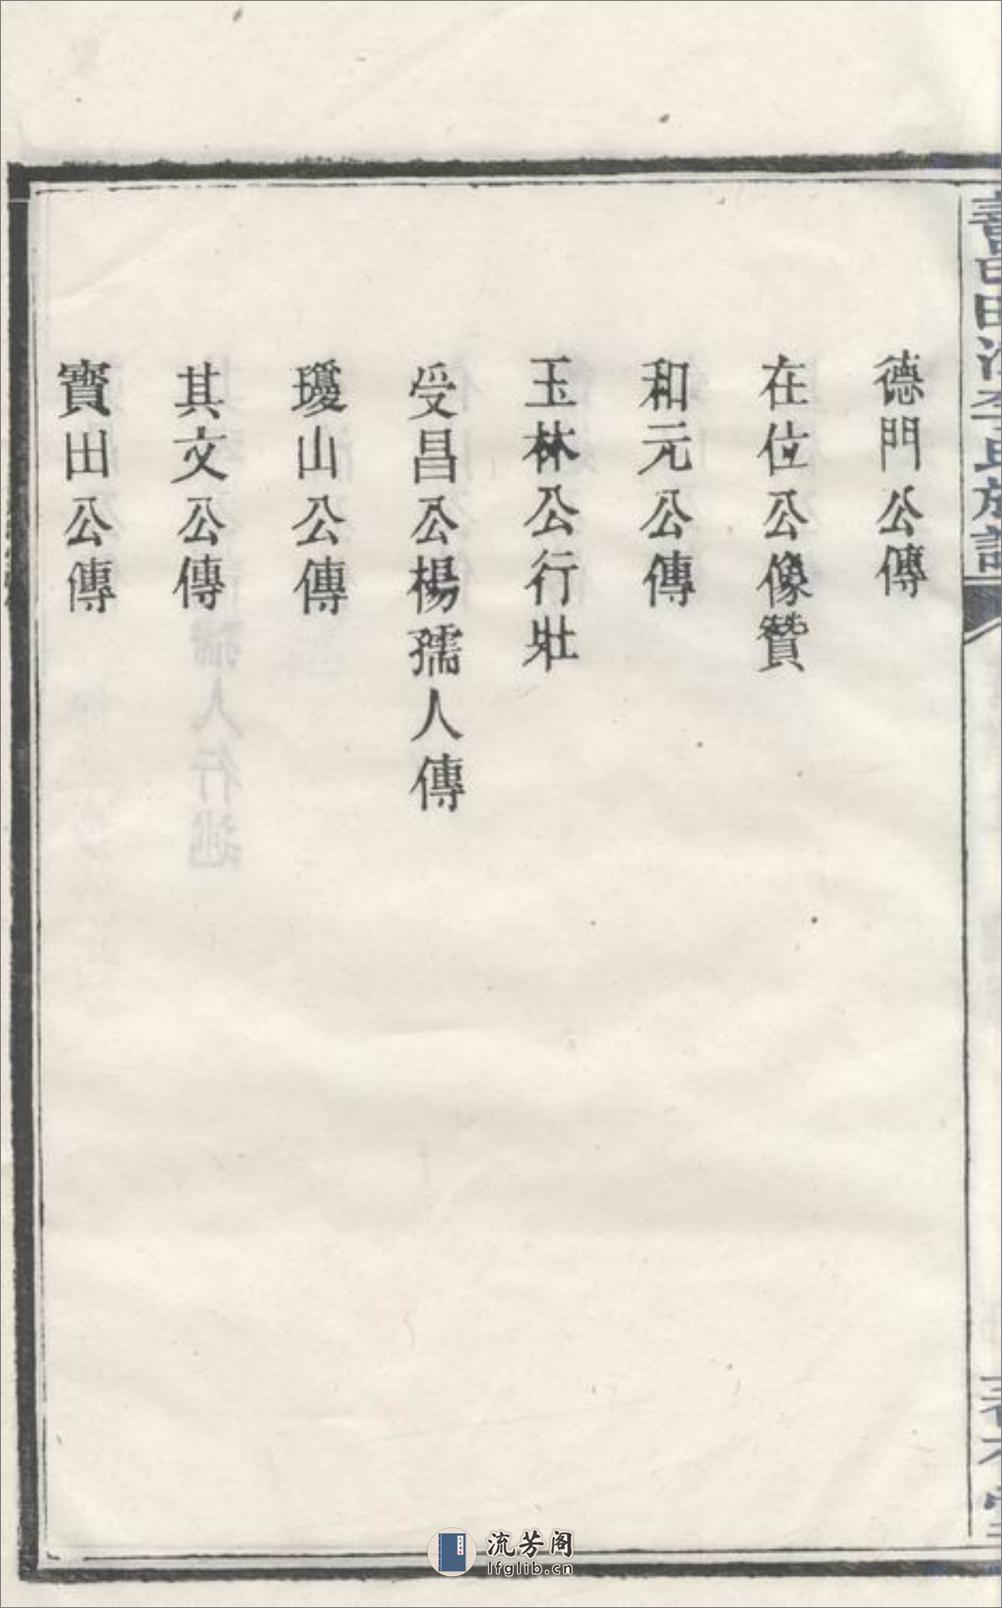 德門公傳
在位公像贊
和元公傳
玉林公行壯
受昌公楊孺人傳
瓊山公傳
其文公傳
寶田公傳
李氏族譜
流芳阁
lfglib.cn